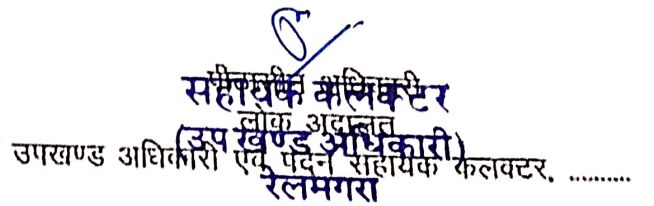 पीठासीन अधिकारी
सहायक कलक्टर
लोक अदालत
(उप खण्ड अधिकारी)
उपखण्ड अधिकारी एवं पदेन सहायक कलक्टर. ..........
रेलमगरा